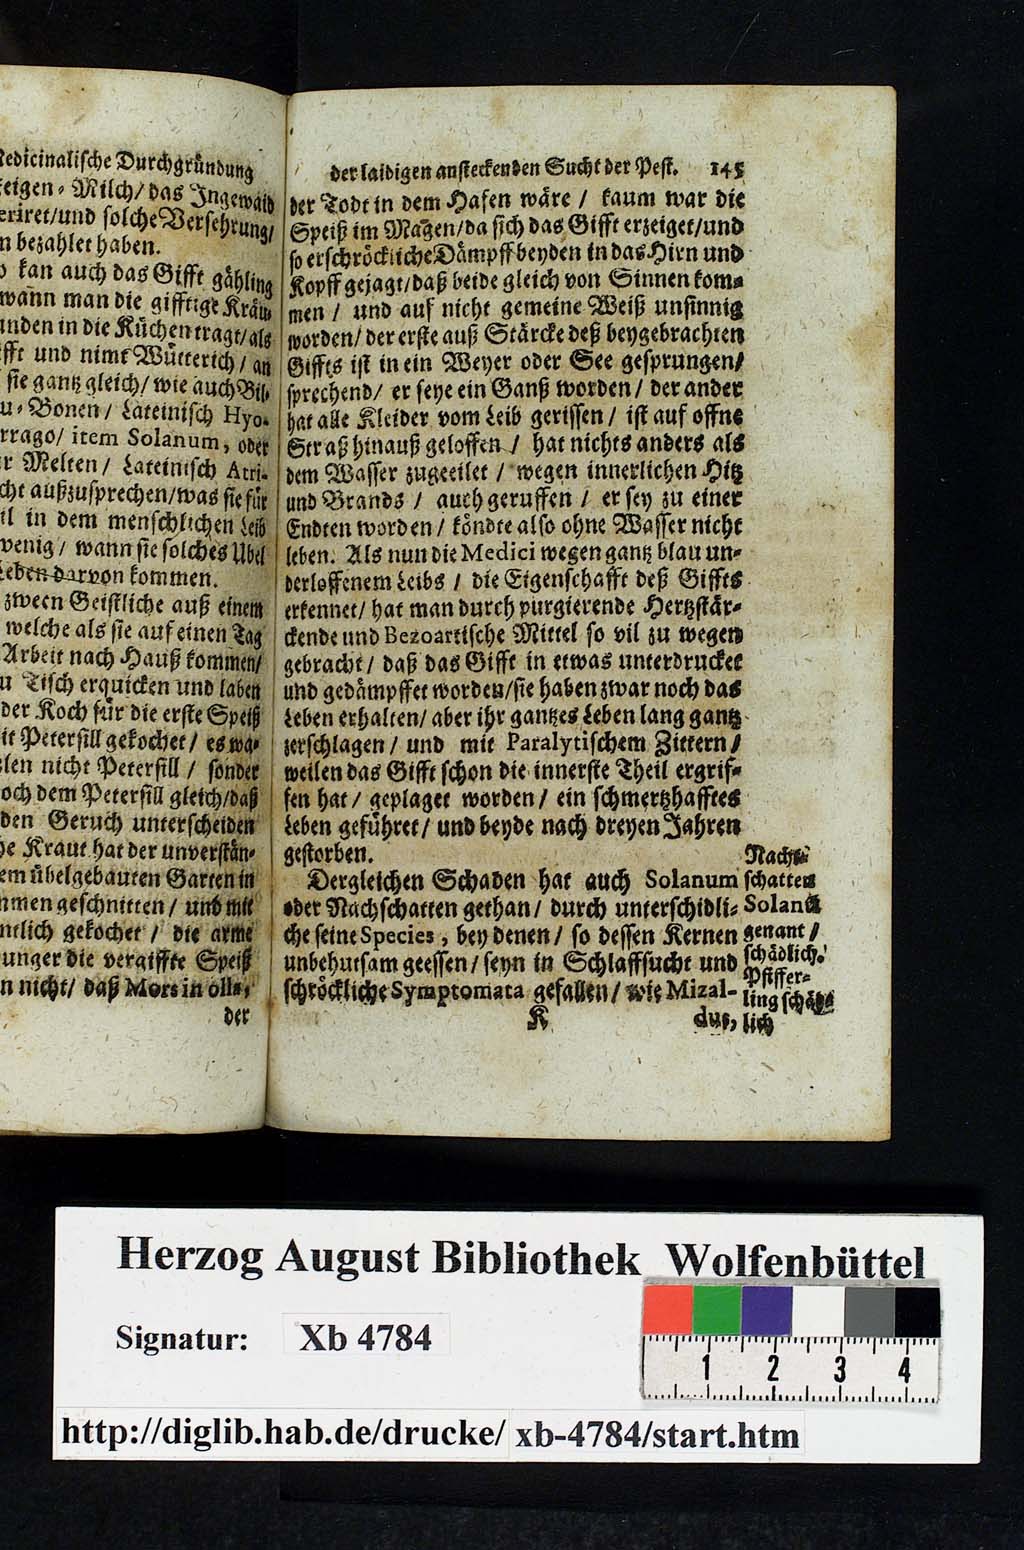 Medicinalische Durchgründung
feigen-Milch/ das Ingewaid
und solche Versehrung/
bezahlet haben.
kan auch das Gifft gähling
wann man die gifftige Kräu-
in die Küchen tragt/ als
und nimt Wütterich/ an
sie gantz gleich/ wie auch Bil-
Bonen/ Lateinisch Hyo-
item Solanum, oder
Melten/ Lateinisch Atri-
außzusprechen/ was sie für
in dem menschlichen Leib
wenig/ wann sie solches Ubel
Leben darvon kommen.
zween Geistliche auß einem
welche als sie auf einen Tag
Arbeit nach Hauß kommen/
Tisch erquicken und laben
der Koch für die erste Speiß
Petersill gekochet/ es wa-
nicht Petersill/ sonder
dem Petersill gleich/ daß
den Geruch unterscheiden
Kraut hat der unverstän-
übelgebauten Garten in
geschnitten/ und mit
gekochet/ die arme
die vergiffte Speiß
nicht/ daß Mors in olla,
der
der laidigen ansteckenden Sucht der Pest. 145
der Todt in dem Hafen wäre/ kaum war die
Speiß im Magen/ da sich das Gifft erzeiget/ und
so erschröckliche Dämpff beyden in das Hirn und
Kopff gejagt/ daß beide gleich von Sinnen kom-
men/ und auf nicht gemeine Weiß unsinnig
worden/ der erste auß Stärcke deß beygebrachten
Giffts ist in ein Weyer oder See gesprungen/
sprechend/ er seye ein Ganß worden/ der ander
hat alle Kleider vom Leib gerissen/ ist auf offne
Straß hinauß geloffen/ hat nichts anders als
dem Wasser zugeeilet/ wegen innerlichen Hitz
und Brands/ auch geruffen/ er sey zu einer
Endten worden/ köndte also ohne Wasser nicht
leben. Als nun die Medici wegen gantz blau un-
derloffenem Leibs/ die Eigenschafft deß Giffts
erkennet/ hat man durch purgierende Hertzstär-
ckende und Bezoartische Mittel so vil zu wegen
gebracht/ daß das Gifft in etwas unterdrucket
und gedämpffet worden/ sie haben zwar noch das
Leben erhalten/ aber ihr gantzes Leben lang gantz
zerschlagen/ und mit Paralytischem Zittern/
weilen das Gifft schon die innerste Theil ergrif-
fen hat/ geplaget worden/ ein schmertzhafftes
Leben geführet/ und beyde nach dreyen Jahren
gestorben.
Dergleichen Schaden hat auch Solanum
oder Nachschatten gethan/ durch unterschidli-
che seine Species, bey denen/ so dessen Kernen
unbehutsam geessen/ seyn in Schlaffsucht und
schröckliche Symptomata gefallen/ wie Mizal-
K dus,
Nacht-
schatten
Solana
genant/
schädlich.
Pfiffer-
ling schäd-
lich
Herzog August Bibliothek Wolfenbüttel
Signatur: Xb 4784
1 2 3 4
http://diglib.hab.de/drucke/ xb-4784/start.htm